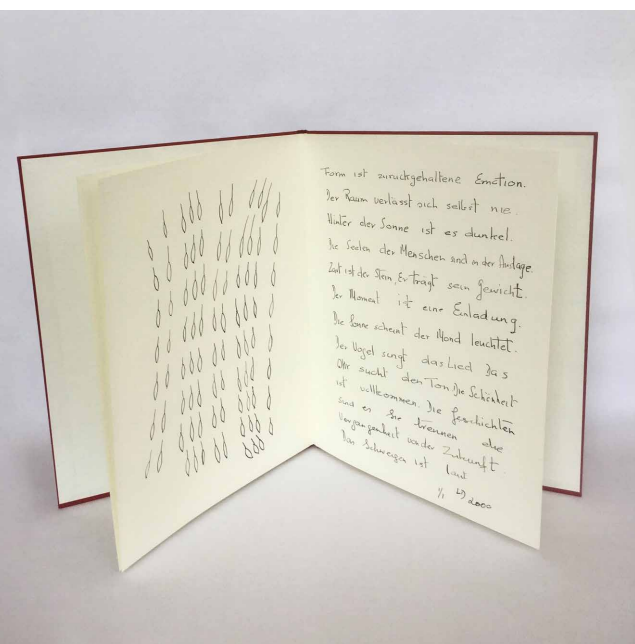 Form ist zurückgehaltene Emotion.
Der Raum verlässt sich selbst nie.
Hinter der Sonne ist es dunkel.
Die Seelen der Menschen sind in der Anlage.
Zart ist der Stein, Er trägt sein Gewicht.
Der Moment ist eine Einladung.
Die Sonne scheint der Mond leuchtet.
Der Vogel singt das Lied Das
Ohr sucht den Ton Die Schönheit
ist vollkommen. Die Geschichten
sind es Sie trennen die
Vergangenheit von der Zukunft.
Das Schweigen ist laut
1/1 2000